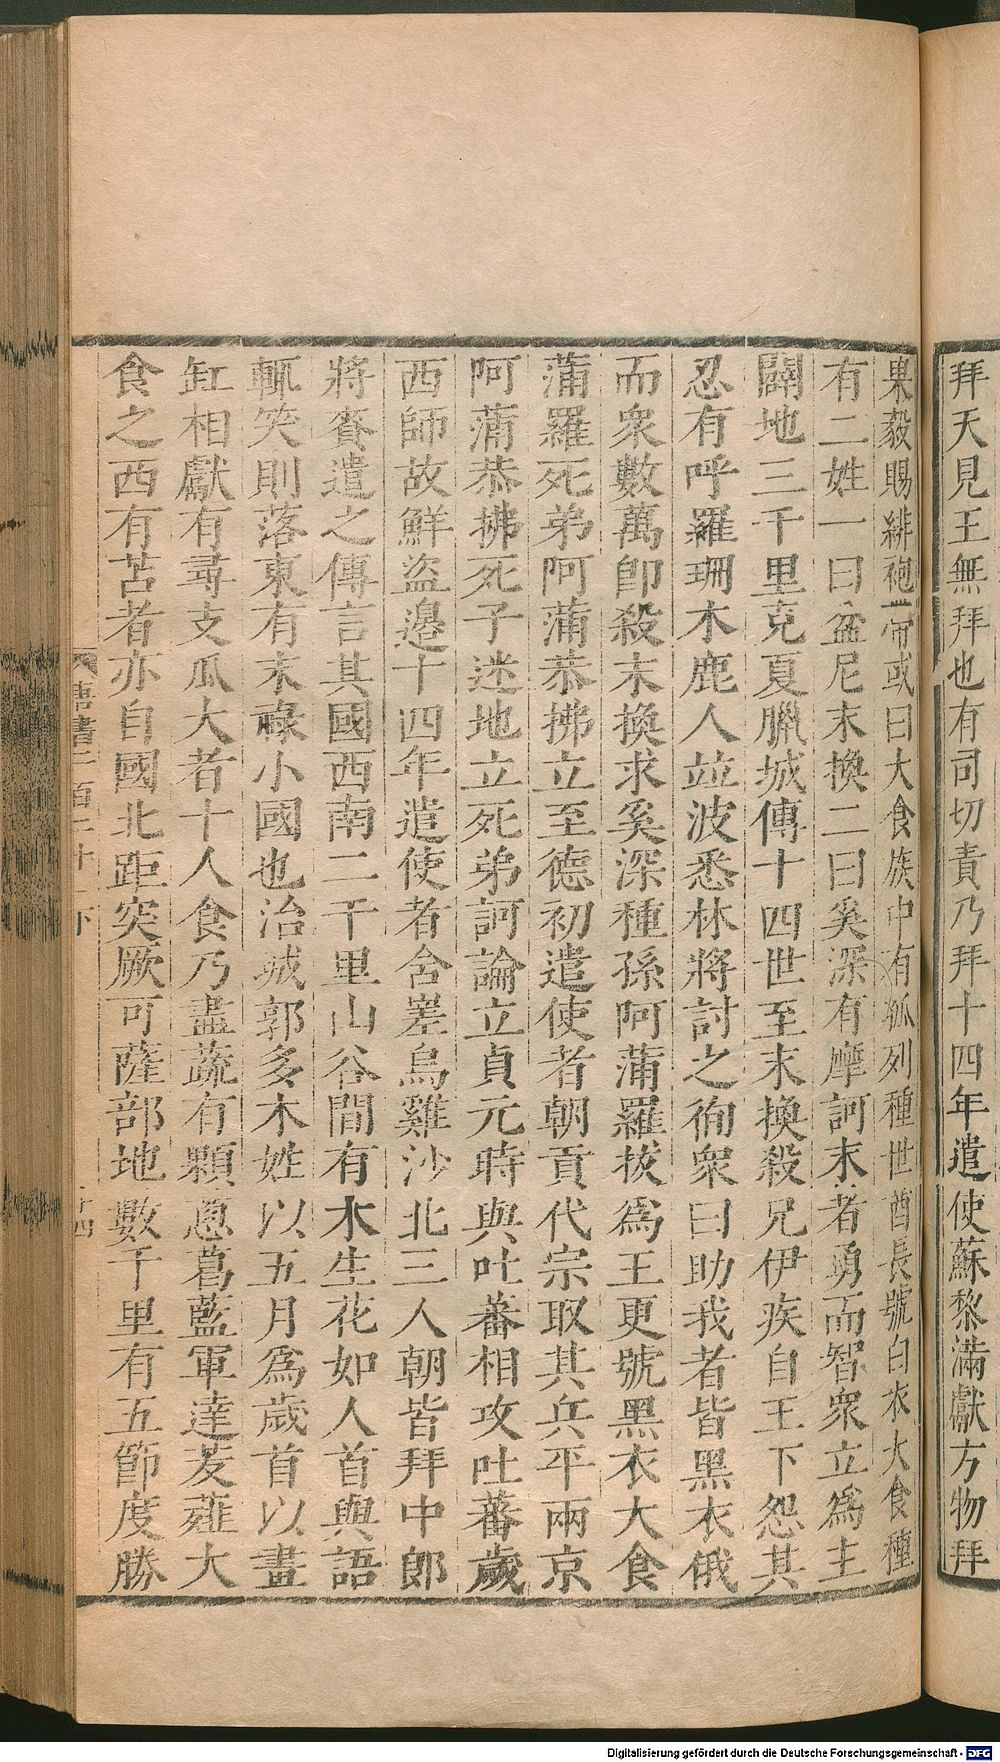 拜天見王無拜也有司切責乃拜十四年遣使蘇黎滿獻方物拜
果毅賜緋袍帶或曰大食族中有孤列種世酋長號白衣大食種
有二姓一曰盆尼末換二曰奚深有摩訶末者勇而智衆立爲主
闢地三千里克夏臘城傳十四世至末換殺兄伊疾自王下怨其
忍有呼羅珊木鹿人竝波悉林將討之徇衆曰助我者皆黑衣俄
而衆數萬卽殺末換求奚深種孫阿蒲羅拔爲王更號黑衣大食
蒲羅死弟阿蒲恭拂立至德初遣使者朝貢代宗取其兵平兩京
阿蒲恭拂死子迷地立死弟訶論立貞元時與吐蕃相攻吐蕃歲
西師故鮮盜邊十四年遣使者含嵳烏雞沙北三人朝皆拜中郎
將賚遣之傳言其國西南二千里山谷間有木生花如人首與語
輒笑則落東有末祿小國也治城郭多木姓以五月爲歲首以畫
缸相獻有尋支瓜大者十人食乃盡蔬有顆蔥葛藍軍達茇薤大
食之西有苫者亦自國北距突厥可薩部地數千里有五節度勝
唐書二百二十一下 十四
Digitalisierung gefördert durch die Deutsche Forschungsgemeinschaft - DFG